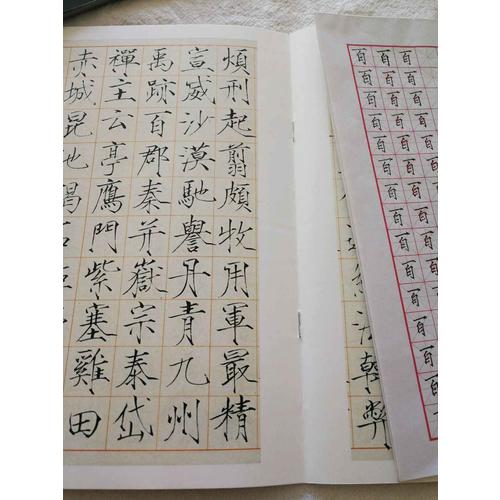 百百百百百百百百百百百百百
百百百百百百百百百百百百百百
百百百百百百百百百百百百
法韓弊
煩刑起翦頗牧用軍最精
宣威沙漠馳譽丹青九州
禹跡百郡秦并嶽宗泰岱
禪主云亭鴈門紫塞雞田
赤城昆